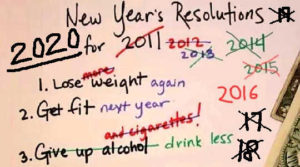 New Year's Resolutions 19
2020 for 2011 2012 2014
2013
2015
1. Lose more weight again
2016
2. Get fit next year
and cigarettes!
17
3. Give up alcohol drink less
18